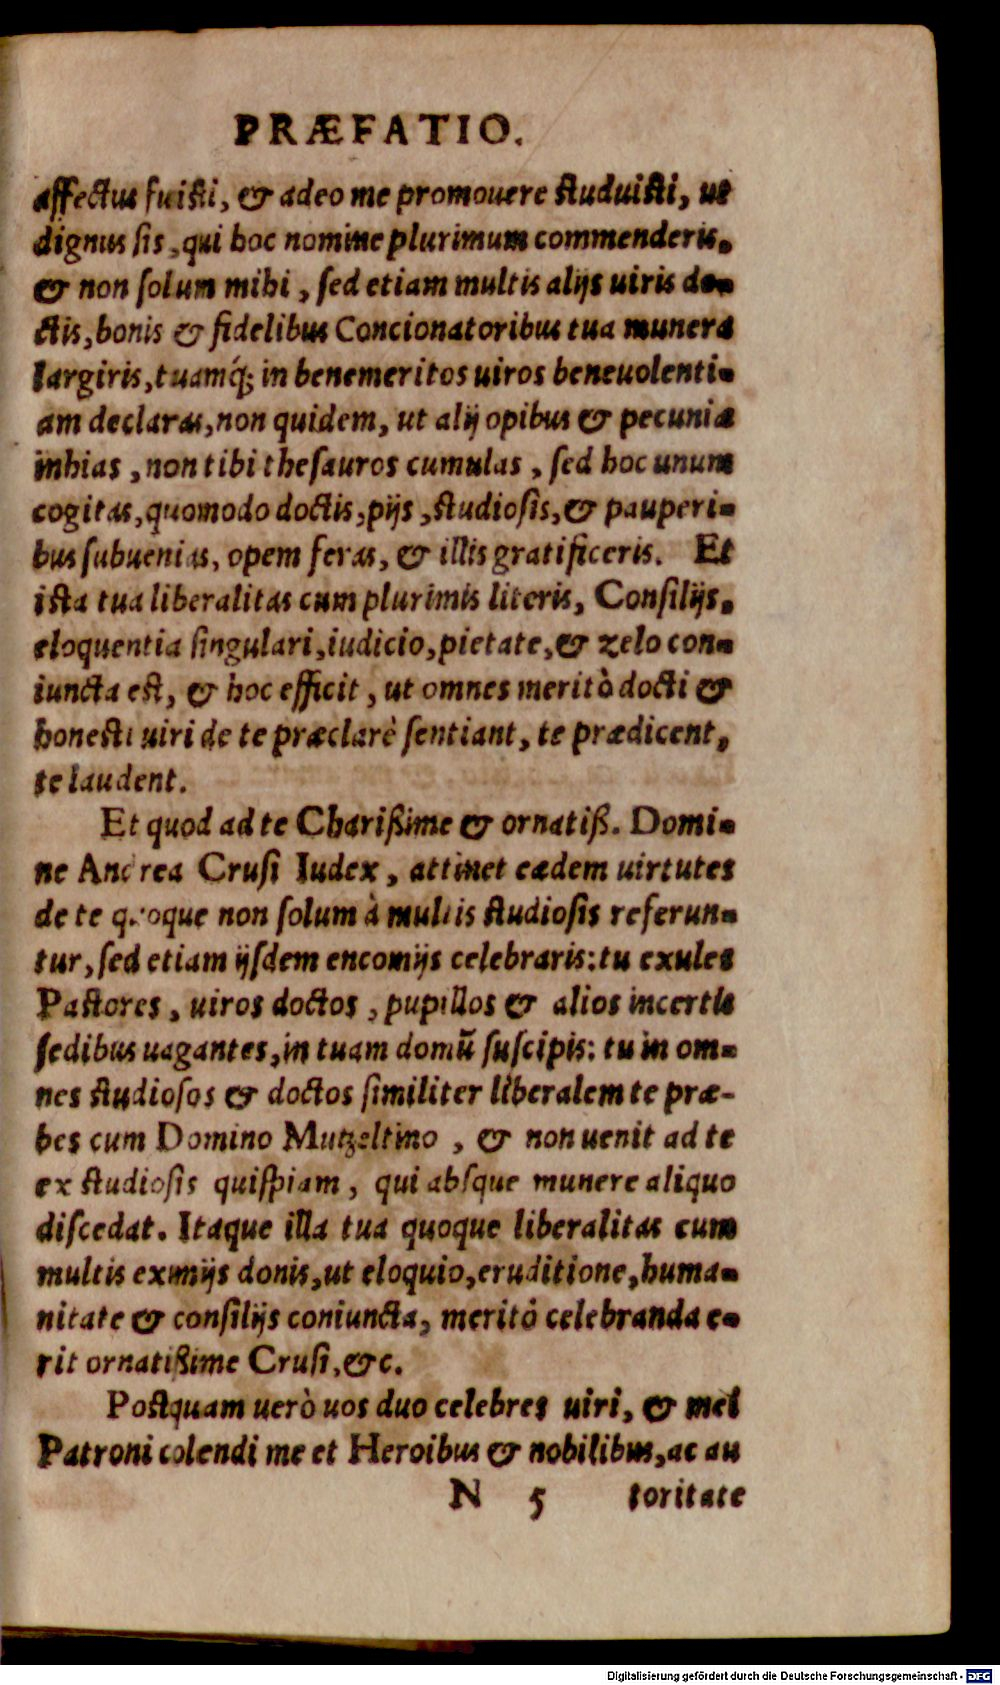 PRÆFATIO.
affectus fuisti, & adeo me promouere studuisti, ut
dignus sis, qui hoc nomine plurimum commenderis,
& non solum mihi, sed etiam multis alijs uiris do-
ctis, bonis & fidelibus Concionatoribus tua munera
largiris, tuamq́; in benemeritos uiros beneuolenti-
am declaras, non quidem, ut alij opibus & pecuniæ
inhias, non tibi thesauros cumulas, sed hoc unum
cogitas, quomodo doctis, pijs, studiosis, & pauperi-
bus subuenias, opem feras, & illis gratificeris. Et
ista tua liberalitas cum plurimis literis, Consilijs,
eloquentia singulari, iudicio, pietate, & zelo con-
iuncta est, & hoc efficit, ut omnes meritò docti &
honesti uiri de te præclarè sentiant, te prædicent,
te laudent.
Et quod ad te Charißime & ornatiß. Domi-
ne Andrea Crusi Iudex, attinet eædem uirtutes
de te quoque non solum à multis studiosis referun-
tur, sed etiam ijsdem encomijs celebraris: tu exules
Pastores, uiros doctos, pupillos & alios incertis
sedibus uagantes, in tuam domũ suscipis: tu in om-
nes studiosos & doctos similiter liberalem te præ-
bes cum Domino Mutzeltino, & non uenit ad te
ex studiosis quispiam, qui absque munere aliquo
discedat. Itaque illa tua quoque liberalitas cum
multis eximijs donis, ut eloquio, eruditione, huma-
nitate & consilijs coniuncta, meritò celebranda e-
rit ornatißime Crusi, &c.
Postquam uerò uos duo celebres uiri, & mei
Patroni colendi me et Heroibus & nobilibus, ac au
N 5 toritate
Digitalisierung gefördert durch die Deutsche Forschungsgemeinschaft - DFG